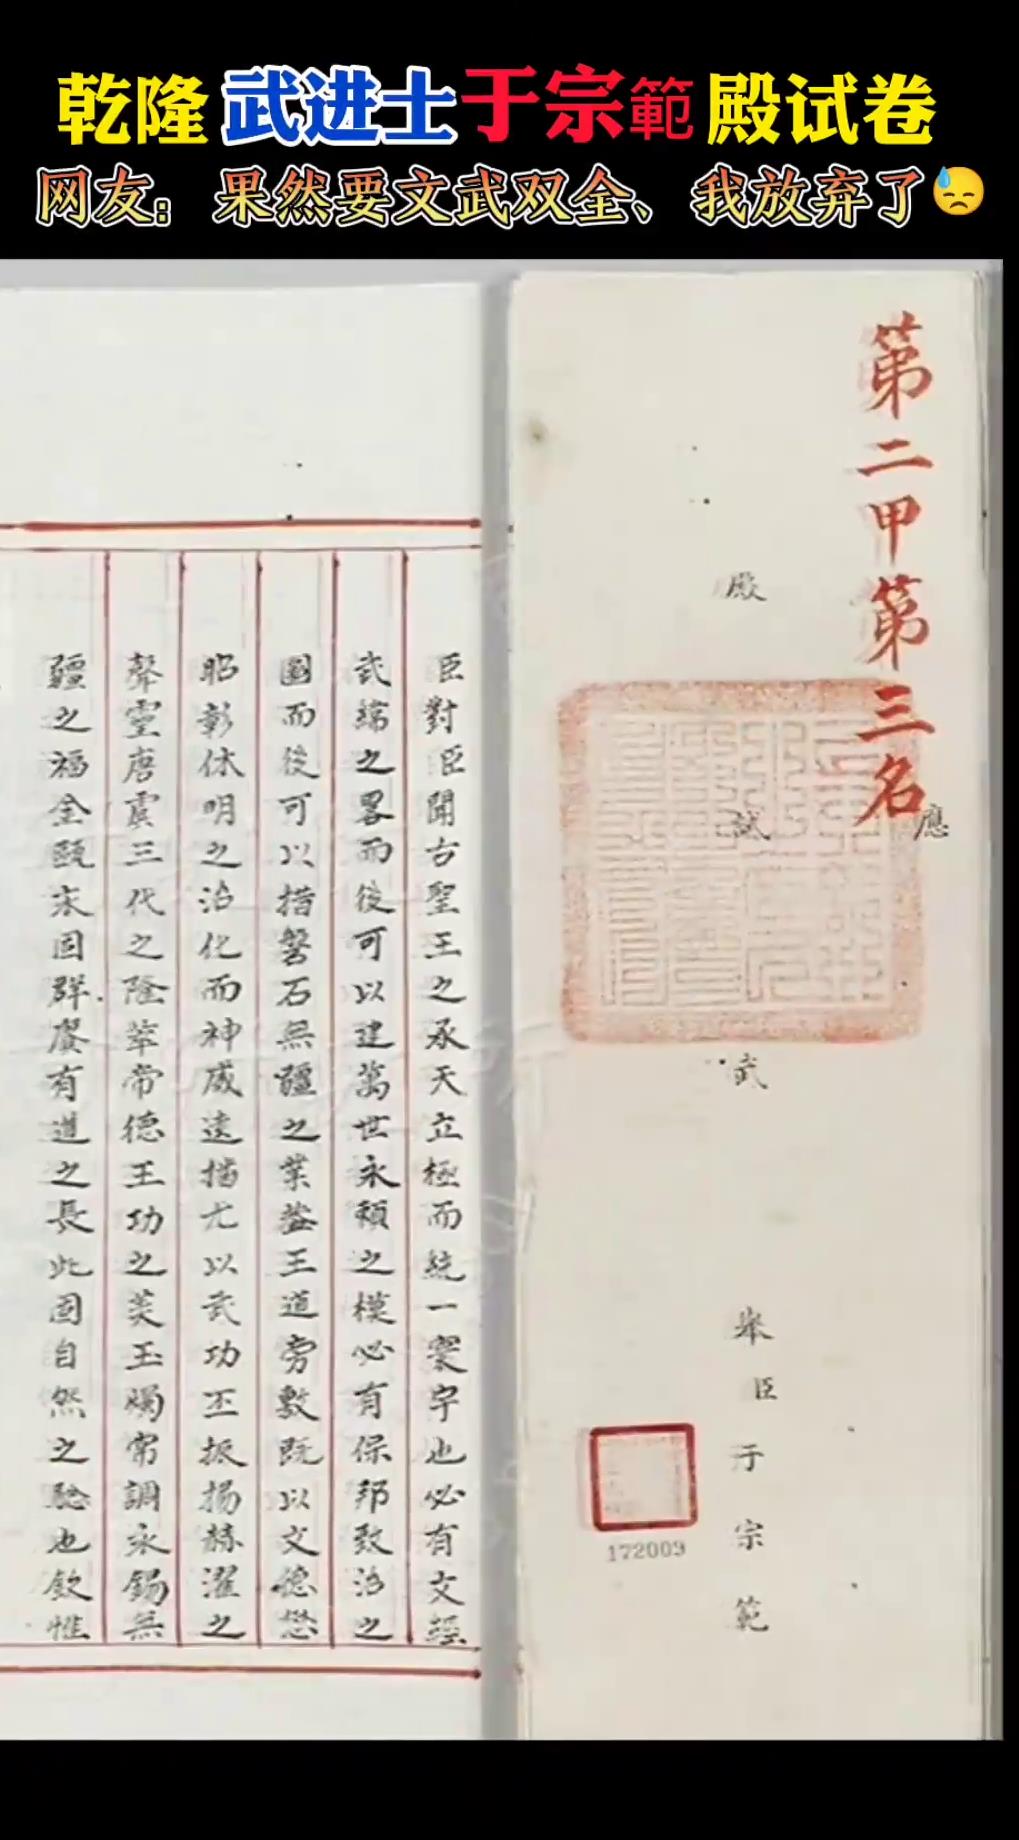 乾隆武进士于宗範殿试卷
网友：果然要文武双全、我放弃了😓
第二甲第三名
應
殿試武
舉臣于宗範
172009
臣對臣聞古聖王之承天立極而統一寰宇也必有文經
武緯之畧而後可以建萬世永賴之模必有保邦致治之
圖而後可以措磐石無疆之業蓋王道旁敷既以文德懋
昭彰休明之治化而神威遠播尤以武功丕振揚赫濯之
聲靈唐虞三代之隆萃帝德王功之美玉燭常調永錫無
疆之福金甌永固群賡有道之長此固自然之騐也欽惟